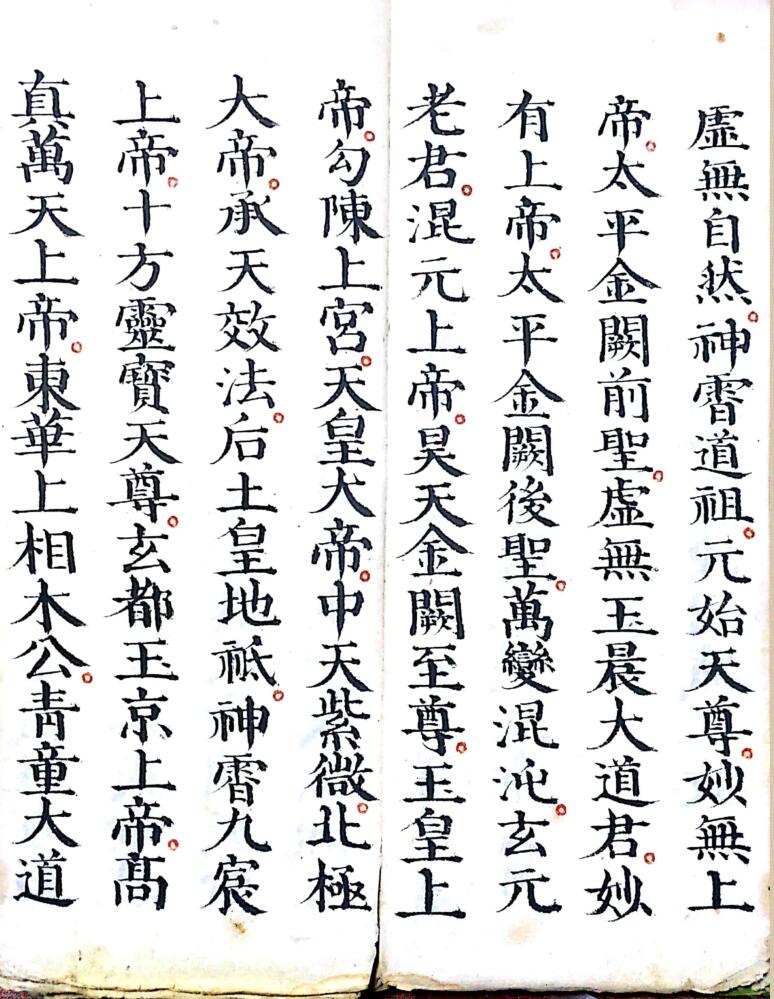 虛無自然。神霄道祖。元始天尊。妙無上
帝。太平金闕前聖。虛無玉晨大道君。妙
有上帝。太平金闕後聖。萬變混沌。玄元
老君。混元上帝。昊天金闕至尊。玉皇上
帝。勾陳上宮。天皇大帝。中天紫微。北極
大帝。承天效法。后土皇地祇。神霄九宸
上帝。十方靈寶天尊。玄都玉京上帝。高
真萬天上帝。東華上相木公。青童大道